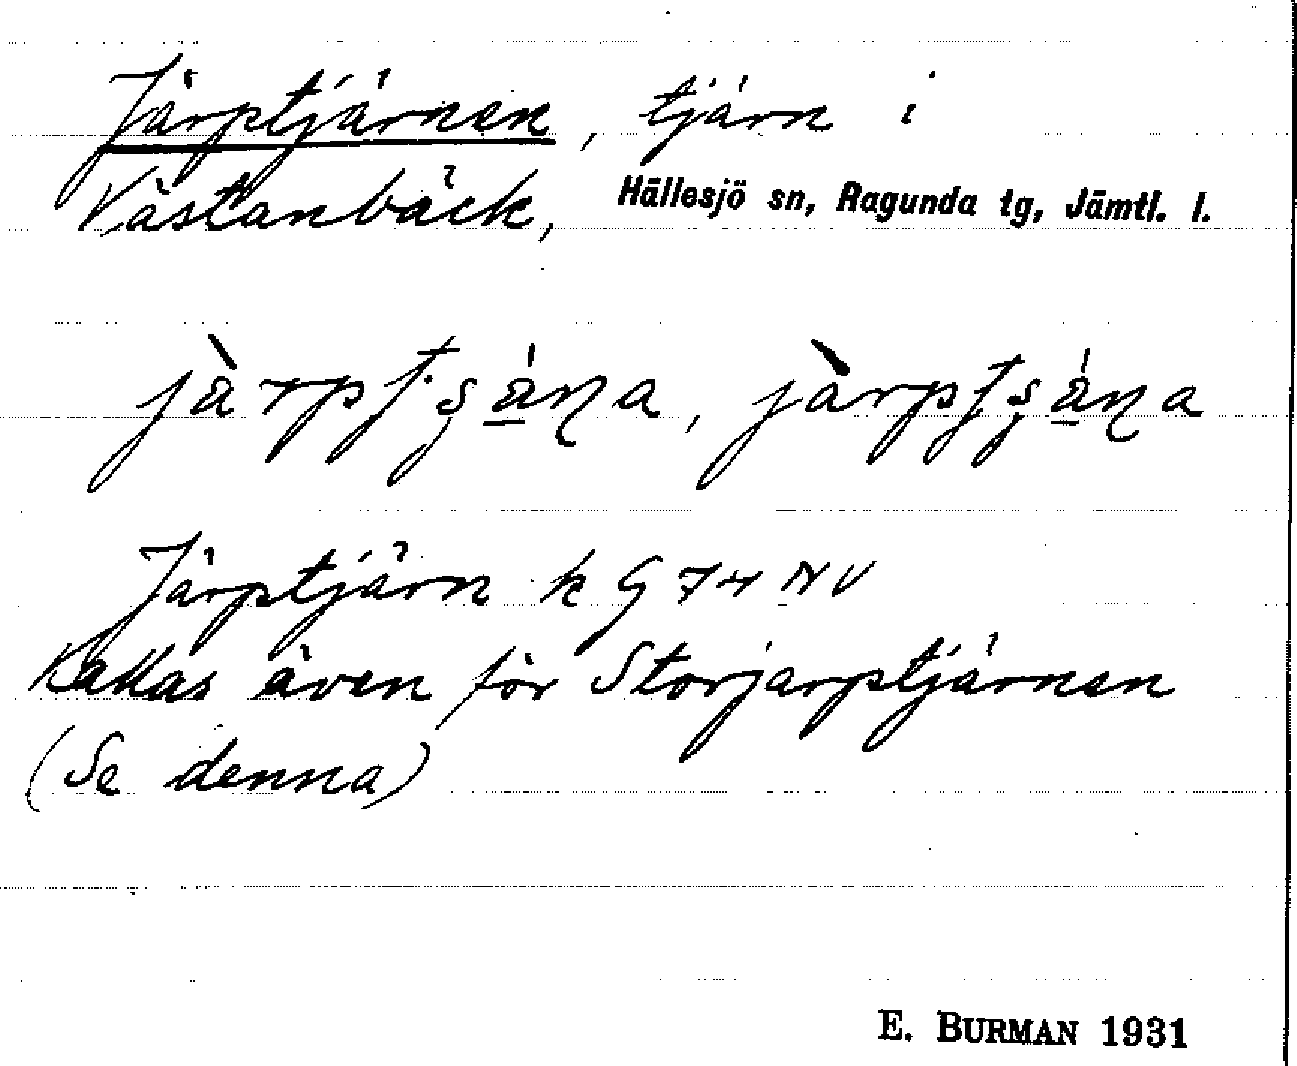 Järptjärnen, tjärn i
Västanbäck, Hällesjö sn, Ragunda tg, Jämtl. l.
Järptjärn k G 74 NV
Kallas även för Storjärptjärnen
(Se denna)
E. BURMAN 1931